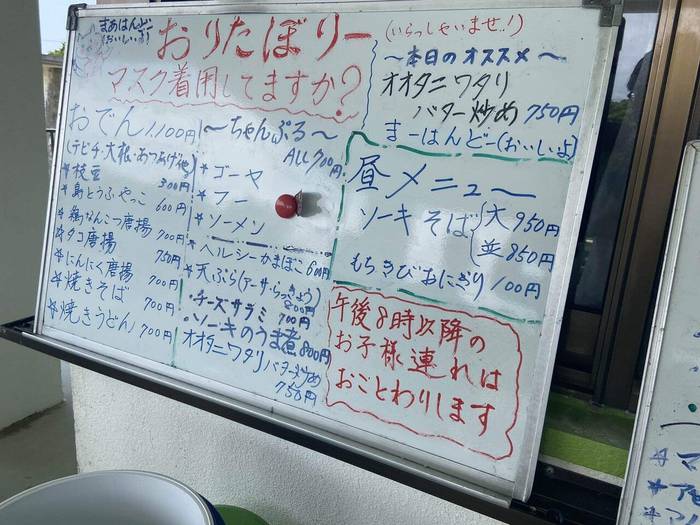 まぁはんど
(おいしいよ)
おりたぼりー
(いらっしゃいませ!!)
マスク着用してますか?
～本日のオススメ～
オオタニワタリ
バター炒め 750円
まーはんどー(おいしいよ)
おでん 1,100円
(テビチ・大根・あつあげ他)
*枝豆 300円
*島とうふやっこ 600円
*鶏なんこつ唐揚 700円
*タコ唐揚 750円
*にんにく唐揚 700円
*焼きそば 700円
*焼きうどん 700円
～ちゃんぷる～
ALL 700円
*ゴーヤ
*フー
*ソーメン
*ヘルシーかまぼこ 600円
*天ぷら(アーサ・らっきょう)
800円
・チーズサラミ 700円
・ソーキのうま煮 800円
オオタニワタリバター炒め
750円
昼メニュー
ソーキそば 大 950円
並 850円
もちきびおにぎり 100円
午後8時以降の
お子様連れは
おことわりします